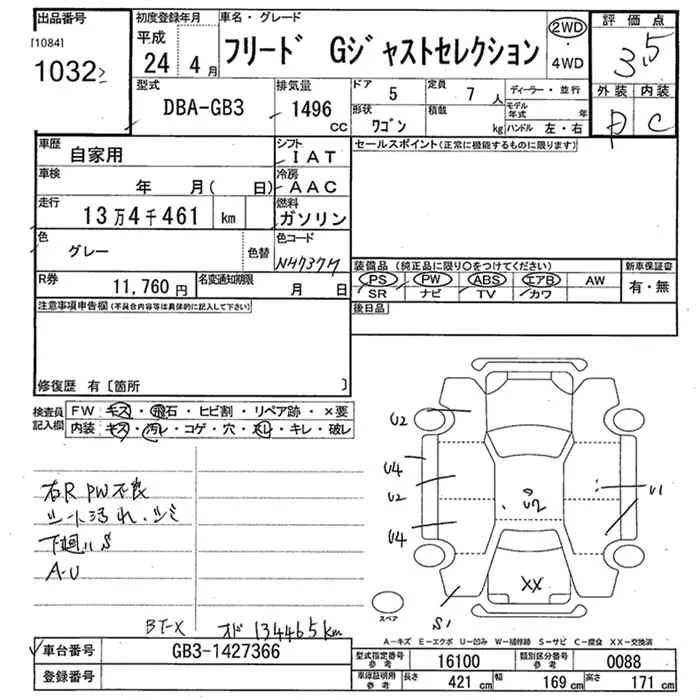 出品番号
[1084]
1032
初度登録年月
平成
24年 4月
車名・グレード
フリード Gジャストセレクション
2WD
・
4WD
評価点
3.5
外装 内装
C
型式
DBA-GB3
排気量
1496
CC
ドア 5
定員 7人
形状 ワゴン
積載 kg
ディーラー・並行
モデル年式 年
ハンドル 左・右
車歴 自家用
シフト IAT
セールスポイント(正常に機能するものに限ります)
車検 年 月( 日)
冷房 AAC
走行 13万4千461 km
燃料 ガソリン
色 グレー 色替
色コード NH737M
装備品(純正品に限り○をつけてください)
新車保証書
PS PW ABS エアB AW
SR ナビ TV カワ
有・無
R券 11,760円
名変通知期限 月 日
後日品
注意事項申告欄(不具合内容等は具体的に記入して下さい)
修復歴 有〔箇所 〕
検査員記入欄
FW キズ・飛石・ヒビ割・リペア跡・×要
内装 キズ・汚レ・コゲ・穴・スレ・キレ・破レ
右R PW不良
シート汚れ.シミ
下廻りS
A-U
BT-X オド 134465km
U2
U4
U2
U4
U2
U1
XX
S1
スペア
A-キズ E-エクボ U-凹み W-補修跡 S-サビ C-腐食 XX-交換済
車台番号 GB3-1427366
登録番号
型式指定番号 参考 16100
類別区分番号 参考 0088
車庫証明用 参考 長さ 421 cm 幅 169 cm 高さ 171 cm